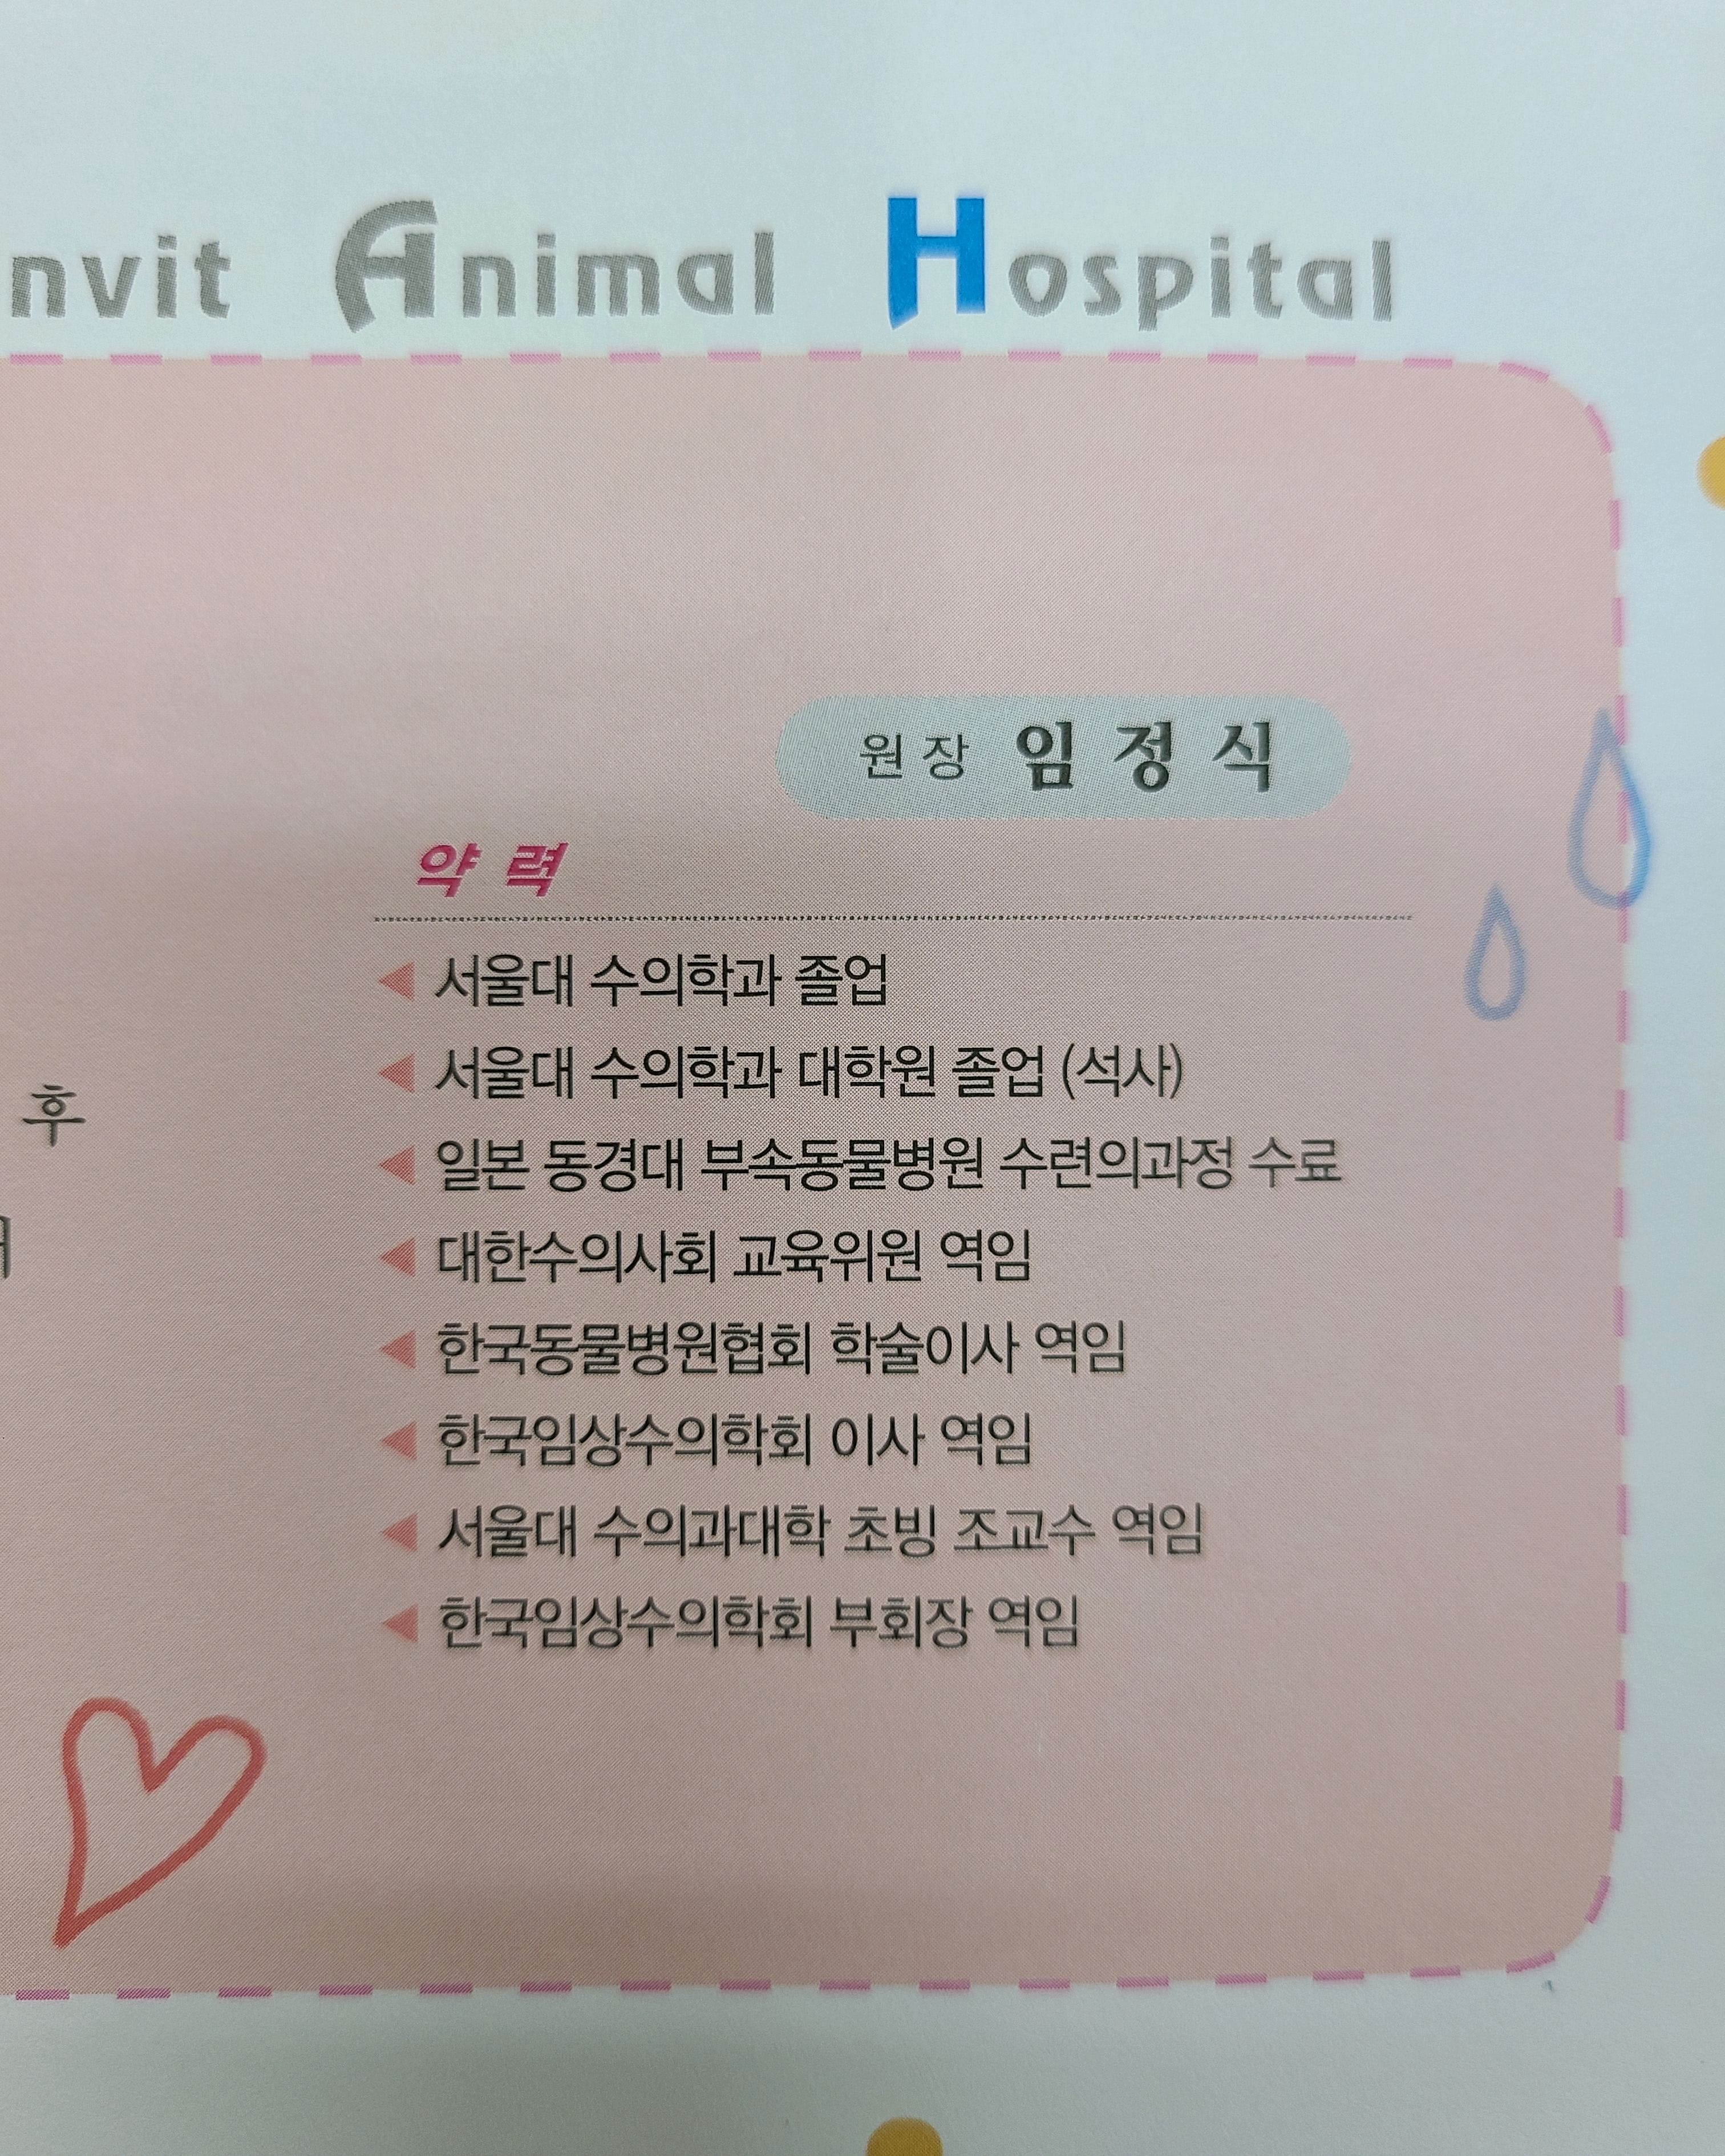 nvit Animal Hospital
원장 임정식
약력
서울대 수의학과 졸업
서울대 수의학과 대학원 졸업 (석사)
후
일본 동경대 부속동물병원 수련의과정 수료
대한수의사회 교육위원 역임
한국동물병원협회 학술이사 역임
한국임상수의학회 이사 역임
서울대 수의과대학 초빙 조교수 역임
한국임상수의학회 부회장 역임